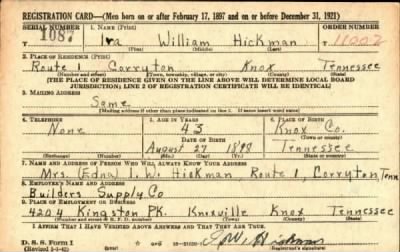 REGISTRATION CARD—(Men born on or after February 17, 1897 and on or before December 31, 1921)
SERIAL NUMBER 1. NAME (Print) ORDER NUMBER
1087 Ira William Hickman 11002
(First) (Middle) (Last)
2. PLACE OF RESIDENCE (Print)
Route 1 Corryton Knox Tennessee
(Number and street) (Town, township, village, or city) (County) (State)
[THE PLACE OF RESIDENCE GIVEN ON THE LINE ABOVE WILL DETERMINE LOCAL BOARD
JURISDICTION; LINE 2 OF REGISTRATION CERTIFICATE WILL BE IDENTICAL]
3. MAILING ADDRESS
Same
[Mailing address if other than place indicated on line 2. If same insert word same]
4. TELEPHONE 5. AGE IN YEARS 6. PLACE OF BIRTH
None 43 Knox Co.
DATE OF BIRTH (Town or county)
August 27 1898 Tennessee
(Exchange) (Number) (Mo.) (Day) (Yr.) (State or country)
7. NAME AND ADDRESS OF PERSON WHO WILL ALWAYS KNOW YOUR ADDRESS
Mrs. (Edna) I. W. Hickman Route 1, Corryton, Tenn
8. EMPLOYER'S NAME AND ADDRESS
Builders Supply Co
9. PLACE OF EMPLOYMENT OR BUSINESS
4204 Kingston Pk. Knoxville Knox Tennessee
(Number and street or R. F. D. number) (Town) (County) (State)
I AFFIRM THAT I HAVE VERIFIED ABOVE ANSWERS AND THAT THEY ARE TRUE.
D. S. S. Form 1
(Revised 1-1-42) (over) I W Hickman
(Registrant's signature)